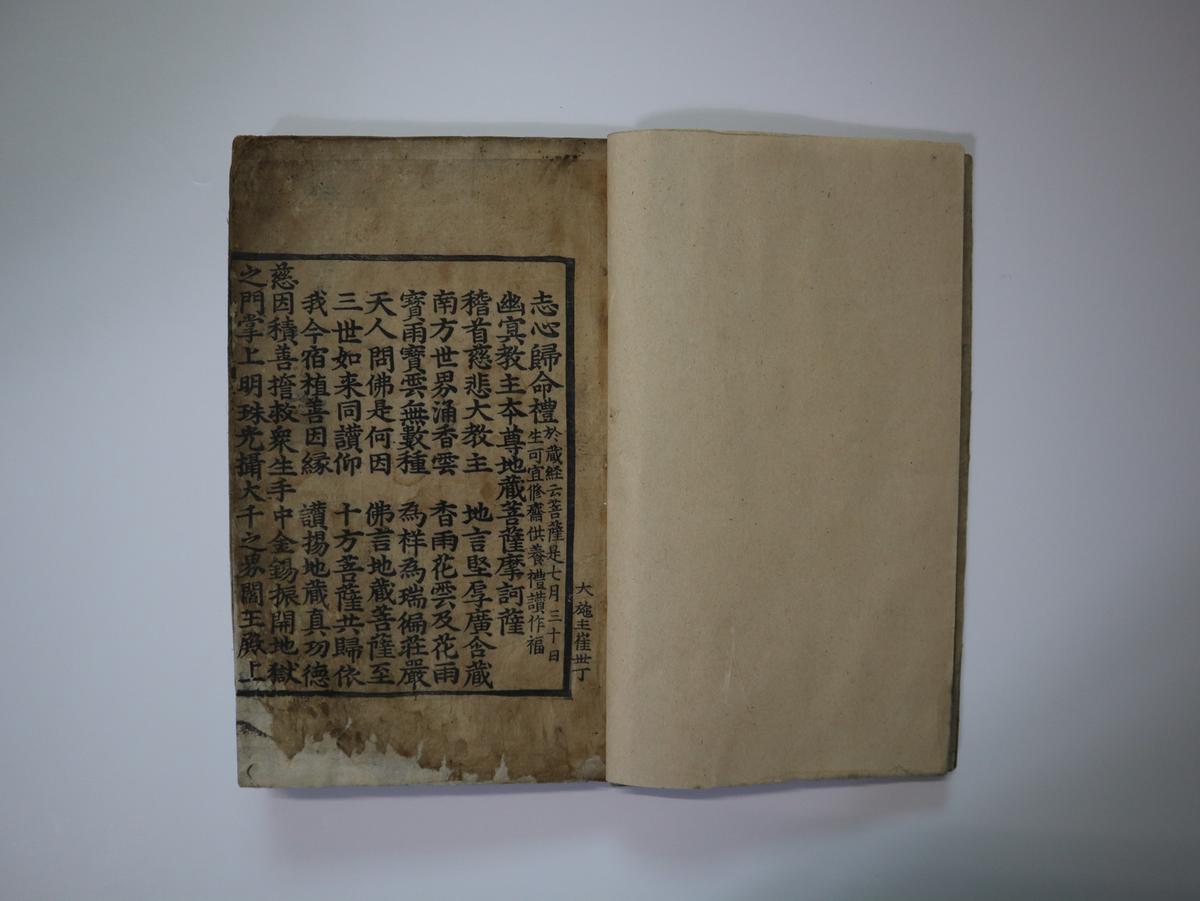 大施主崔世丁
志心歸命禮
於藏経云菩薩是七月三十日
生可宜修齋供養禮讃作福
幽冥教主本尊地藏菩薩摩訶薩
稽首慈悲大教主 地言堅厚廣含藏
南方世界涌香雲 香雨花雲及花雨
寳雨寳雲無數種 為祥為瑞徧莊嚴
天人問佛是何因 佛言地藏菩薩至
三世如来同讃仰 十方菩薩共歸依
我今宿植善因縁 讃揚地藏真功德
慈因積善擔救衆生手中金錫振開地獄
之門掌上明珠光攝大千之界閻王殿上